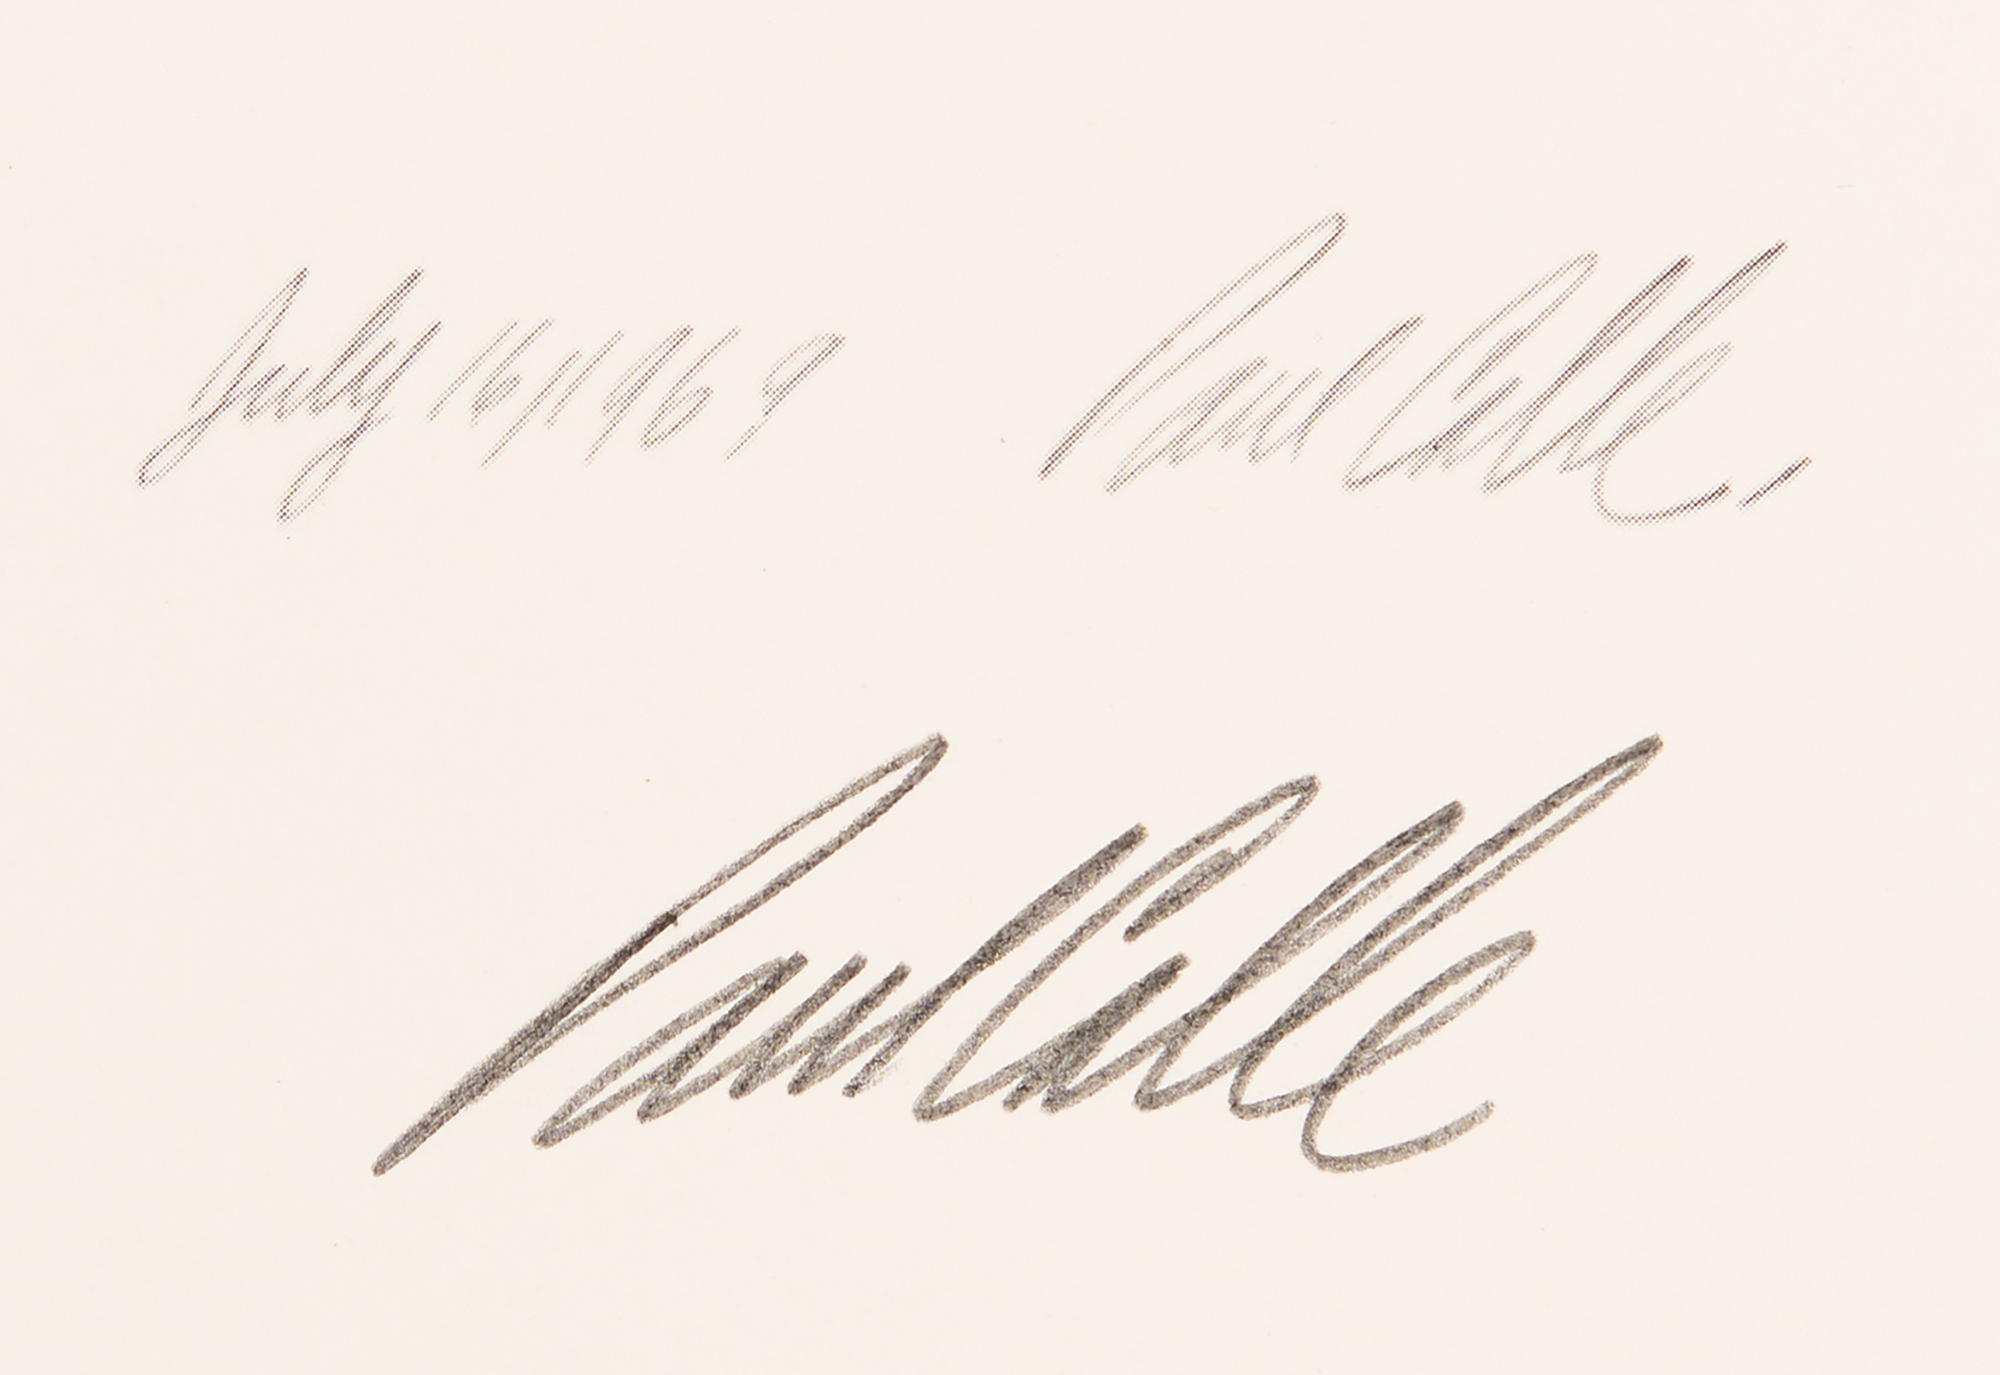 July 16, 1969 Paul Calle
Paul Calle